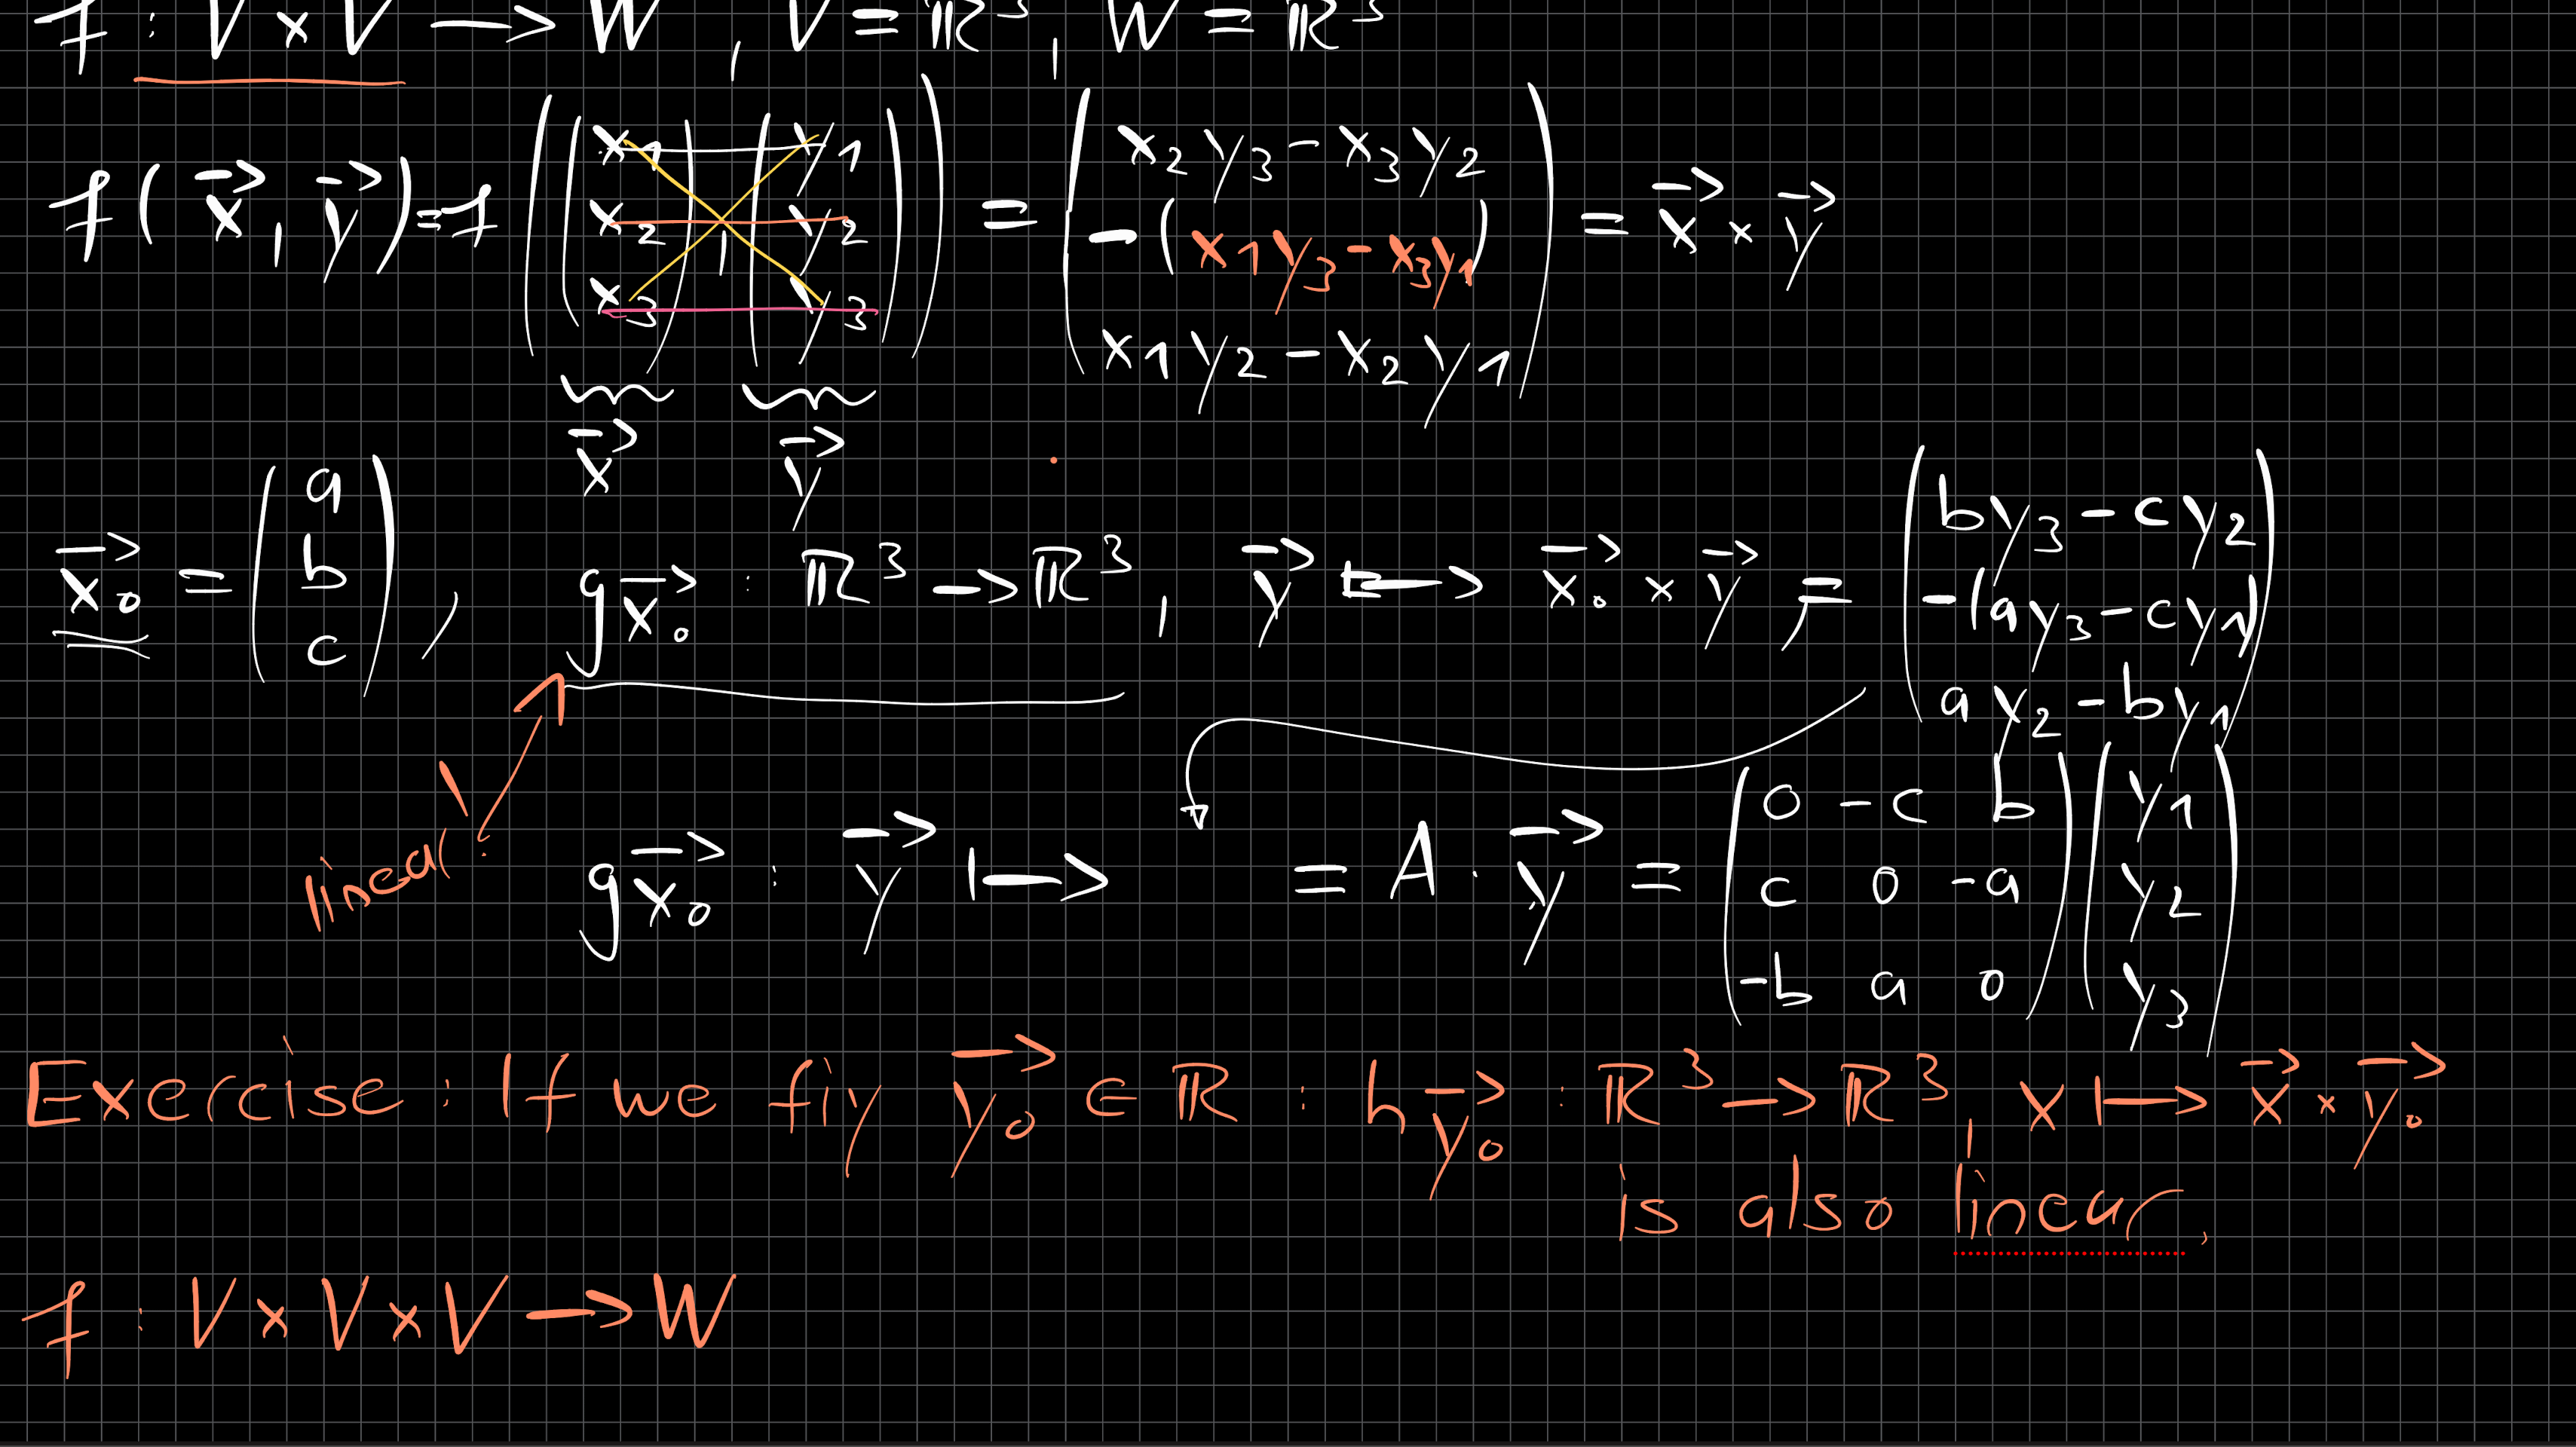 f : V × V → W , V = ℝ³ , W = ℝ³
f ( x⃗ , y⃗ ) = f ( ( x₁ x₂ x₃ ) , ( y₁ y₂ y₃ ) ) = ( x₂y₃ − x₃y₂ −( x₁y₃ − x₃y₁ ) x₁y₂ − x₂y₁ ) = x⃗ × y⃗
x⃗ y⃗
x⃗₀ = ( a b c ) , g x⃗₀ : ℝ³ → ℝ³ , y⃗ ↦ x⃗₀ × y⃗ , = ( by₃ − cy₂ −( ay₃ − cy₁ ) ay₂ − by₁ )
linear !
g x⃗₀ : y⃗ ↦ = A · y⃗ = ( 0 −c b c 0 −a −b a 0 ) ( y₁ y₂ y₃ )
Exercise : If we fiy y⃗₀ ∈ ℝ : h y⃗₀ : ℝ³ → ℝ³ , x ↦ x⃗ × y⃗₀
is also linear .
f : V × V × V → W